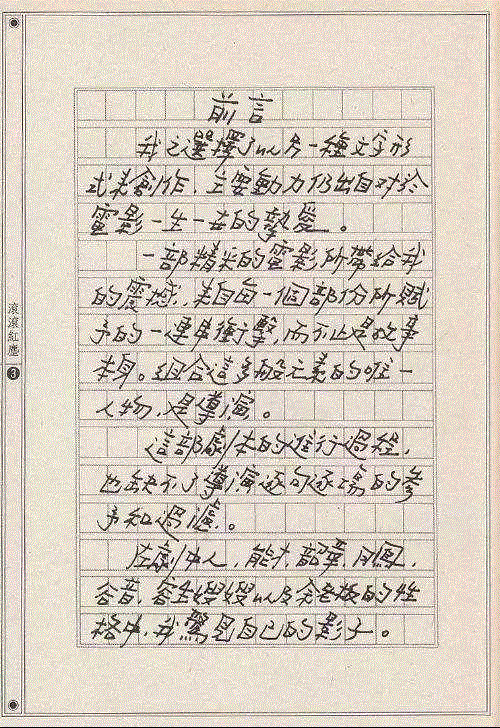 前言
我之選擇了以另一種文字形
式來創作,主要動力仍出自對於
電影一生一世的摯愛。
一部精采的電影所帶給我
的震撼,來自每一個部份所賦
予的一連串衝擊,而不止是故事
本身。組合這多般元素的唯一
人物,是導演。
這部劇本的進行過程,
也缺不了導演逐句逐場的參
予和過濾。
在劇中人,能才,韶華,月鳳,
谷音,容生嫂嫂以及余老板的性
格中,我驚見自己的影子。
滾滾紅塵
3